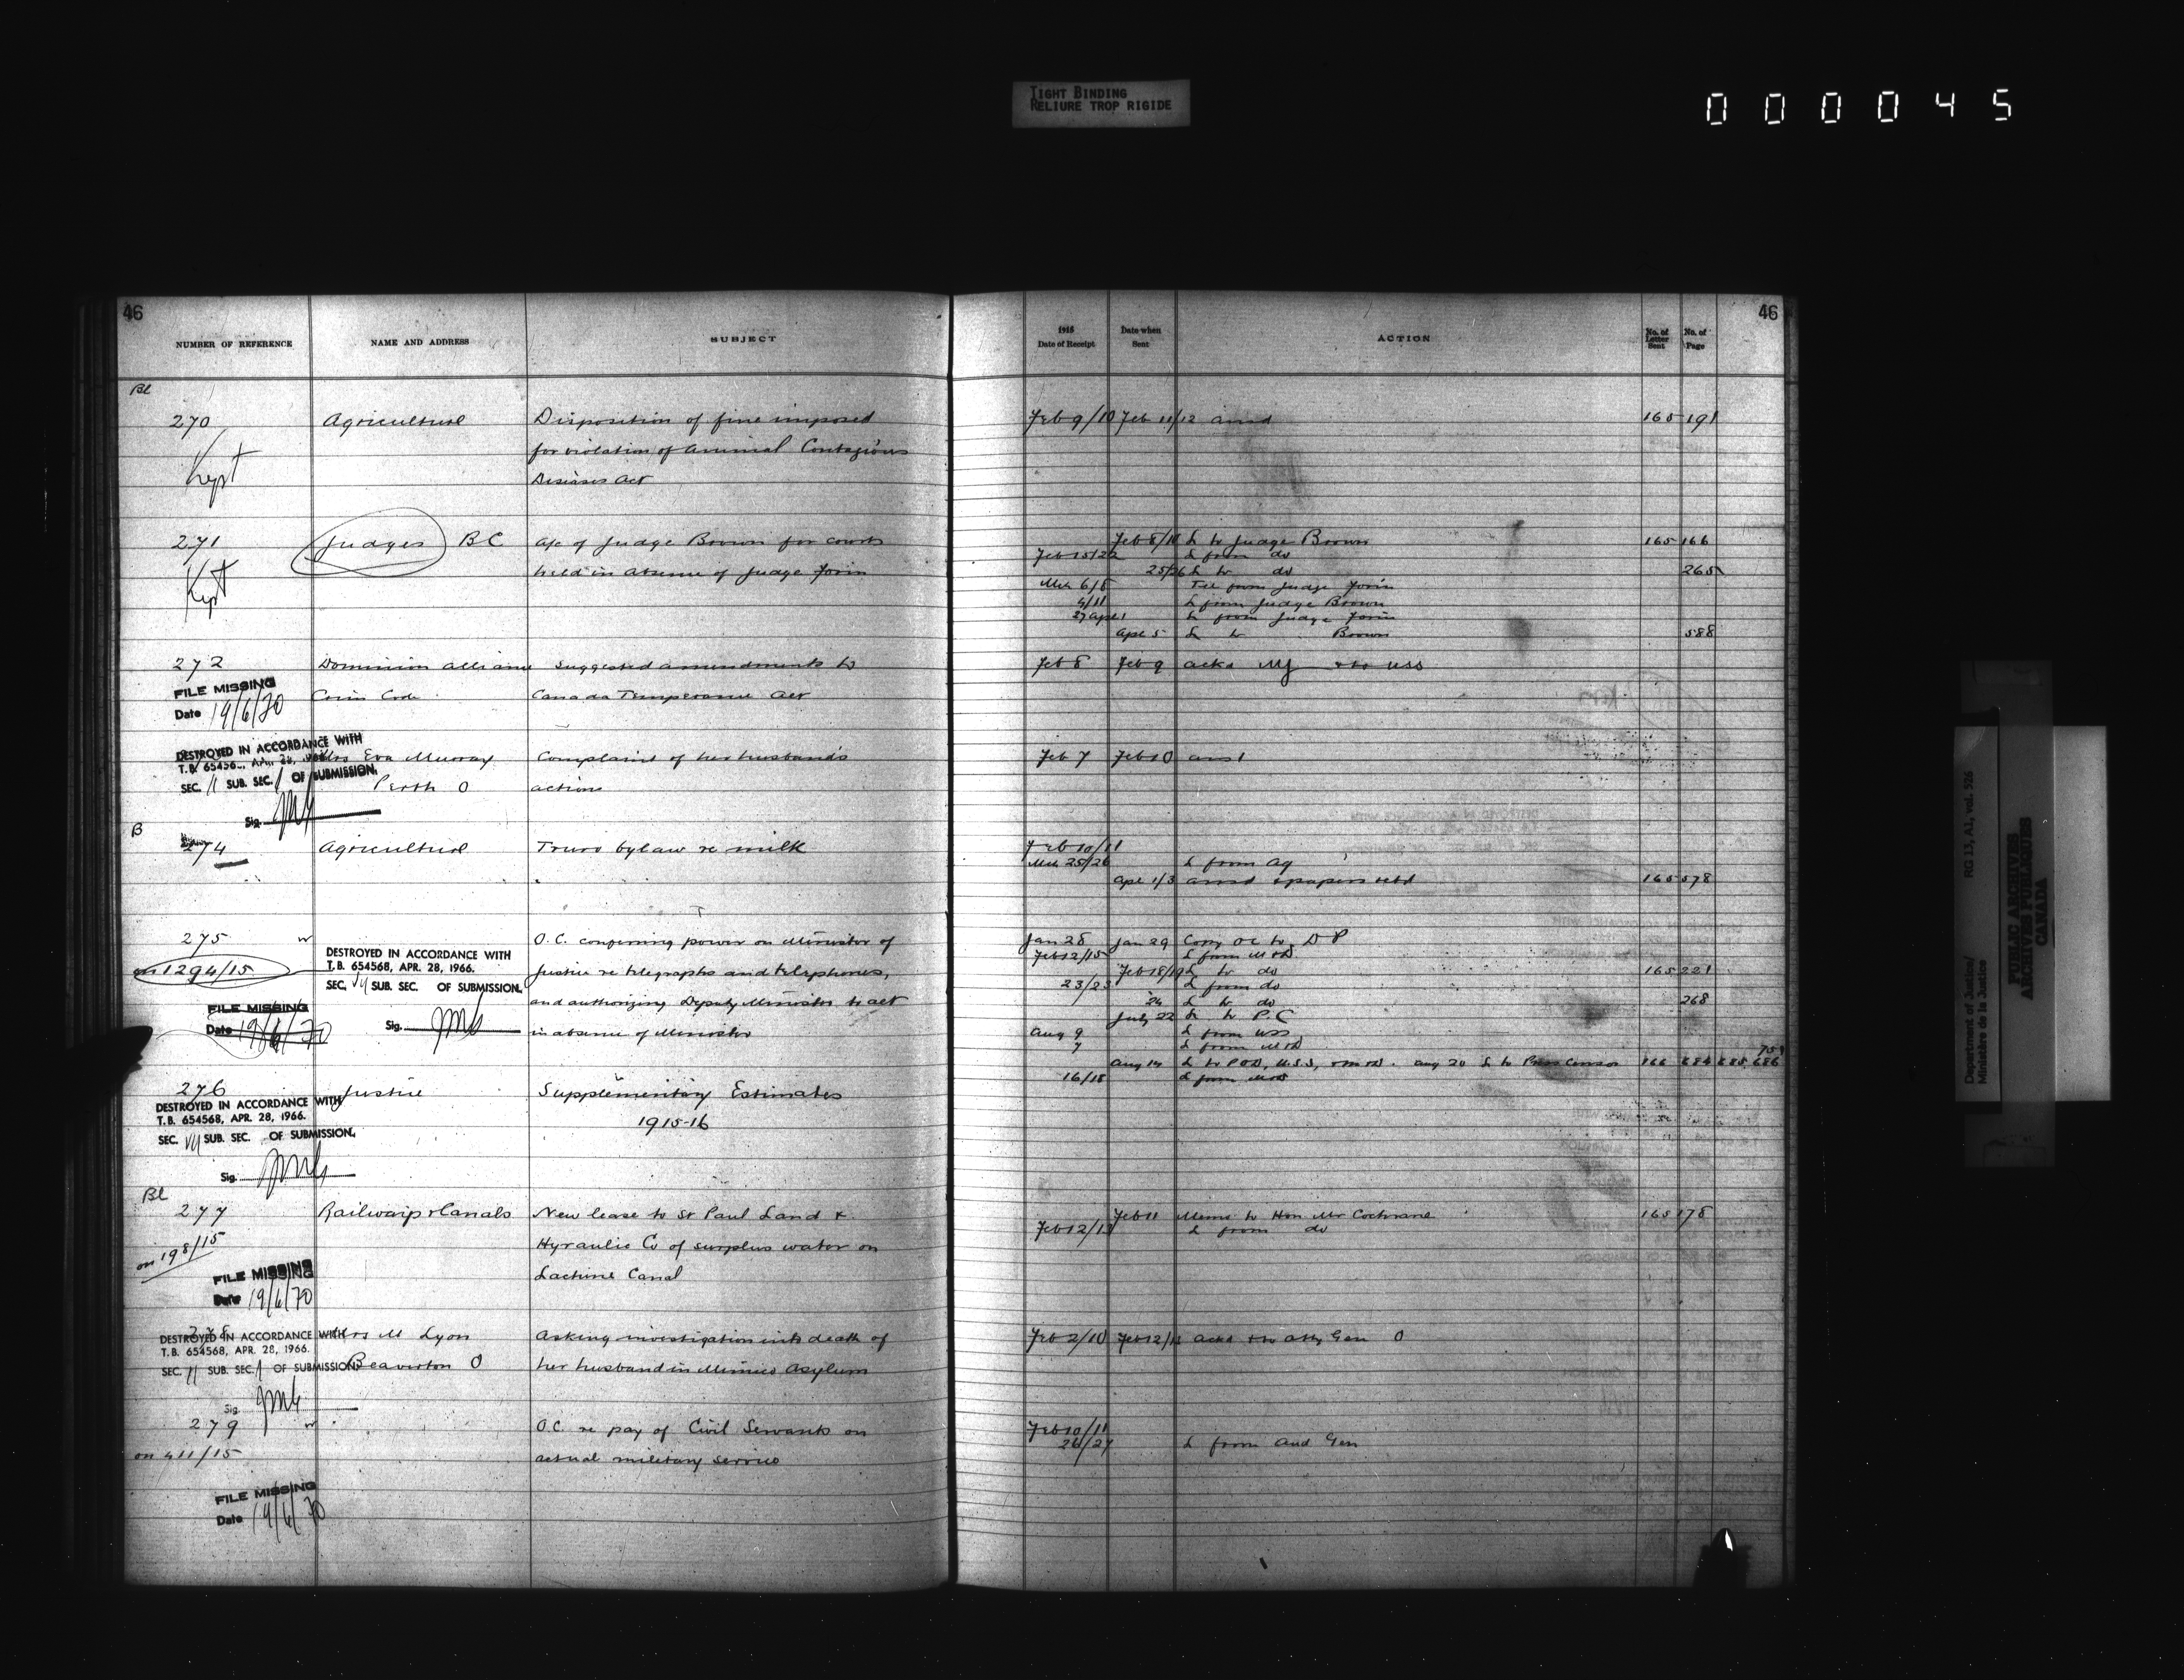 TIGHT BINDING
RELIURE TROP RIGIDE
000045
46
NUMBER OF REFERENCE NAME AND ADDRESS SUBJECT
Bl
270 Agriculture Disposition of fine imposed
for violation of Animal Contagious
Kept Diseases Act
271 Judges BC a/c of Judge Brown for courts
Kept held in absence of Judge Forin
272 Dominion Alliance Suggested amendments to
FILE MISSING Crim Code Canada Temperance Act
Date 19/6/70
DESTROYED IN ACCORDANCE WITH
T.B. 654568, APR. 28, Mrs Eva Murray Complaint of her husband's
SEC. 11 SUB. SEC. 1 OF SUBMISSION. Perth O actions
Sig.
B
274 Agriculture Truro bylaw re milk
275 w O.C. conferring power on Minister of
on 1294/15 DESTROYED IN ACCORDANCE WITH Justice re telegraphs and telephones,
T.B. 654568, APR. 28, 1966.
SEC. SUB. SEC. OF SUBMISSION. and authorizing Deputy Minister to act
FILE MISSING
Date 19/6/70 Sig. in absence of Minister
276 Justice Supplementary Estimates
DESTROYED IN ACCORDANCE WITH 1915-16
T.B. 654568, APR. 28, 1966.
SEC. SUB. SEC. OF SUBMISSION.
Sig.
Bl
277 Railways & Canals New lease to St Paul Land &
on 198/15 Hyraulic Co of surplus water on
FILE MISSING Lachine Canal
Date 19/6/70
278 Mrs M Lyon Asking investigation into death of
DESTROYED IN ACCORDANCE WITH
T.B. 654568, APR. 28, 1966.
SEC. 11 SUB. SEC. 1 OF SUBMISSION. Beaverton O her husband in Mimico Asylum
Sig.
279 w O.C. re pay of Civil Servants on
on 411/15 actual military service
FILE MISSING
Date 19/6/70
46
1915 Date of Receipt Date when Sent ACTION No. of Letter Sent No. of Page
Feb 9/10 Feb 11/12 ansd 165 191
Feb 8/10 L to Judge Brown 165 166
Feb 15/22 L from do
25/26 L to do 265
Mch 6/8 Tel from Judge Forin
4/11 L from Judge Brown
27 Apl 1 L from Judge Forin
Apl 5 L to Brown 588
Feb 8 Feb 9 ackd & to USS
Feb 7 Feb 10 ansd
Feb 10/11
Mch 25/26 L from Ag
Apl 1/3 ansd & papers retd 165 578
Jan 28 Jan 29 Copy OC to D P
Feb 12/15 L from M&D
Feb 18/19 L to do 165 221
23/23 L from do
24 L to do 268
July 22 L to P.C
Aug 9 L from USS
7 L from M&D
751
Aug 14 L to POD, U.S.S, & M&D. Aug 20 L to Press Censor 166 684 685 686
16/18 L from M&D
Feb 11 Memo to Hon Mr Cochrane 165 178
Feb 12/13 L from do
Feb 2/10 Feb 12/13 ackd & to Atty Gen O
Feb 10/11
26/27 L from Aud Gen
Department of Justice/ RG 13, A1, vol. 526
Ministère de la Justice
PUBLIC ARCHIVES
ARCHIVES PUBLIQUES
CANADA